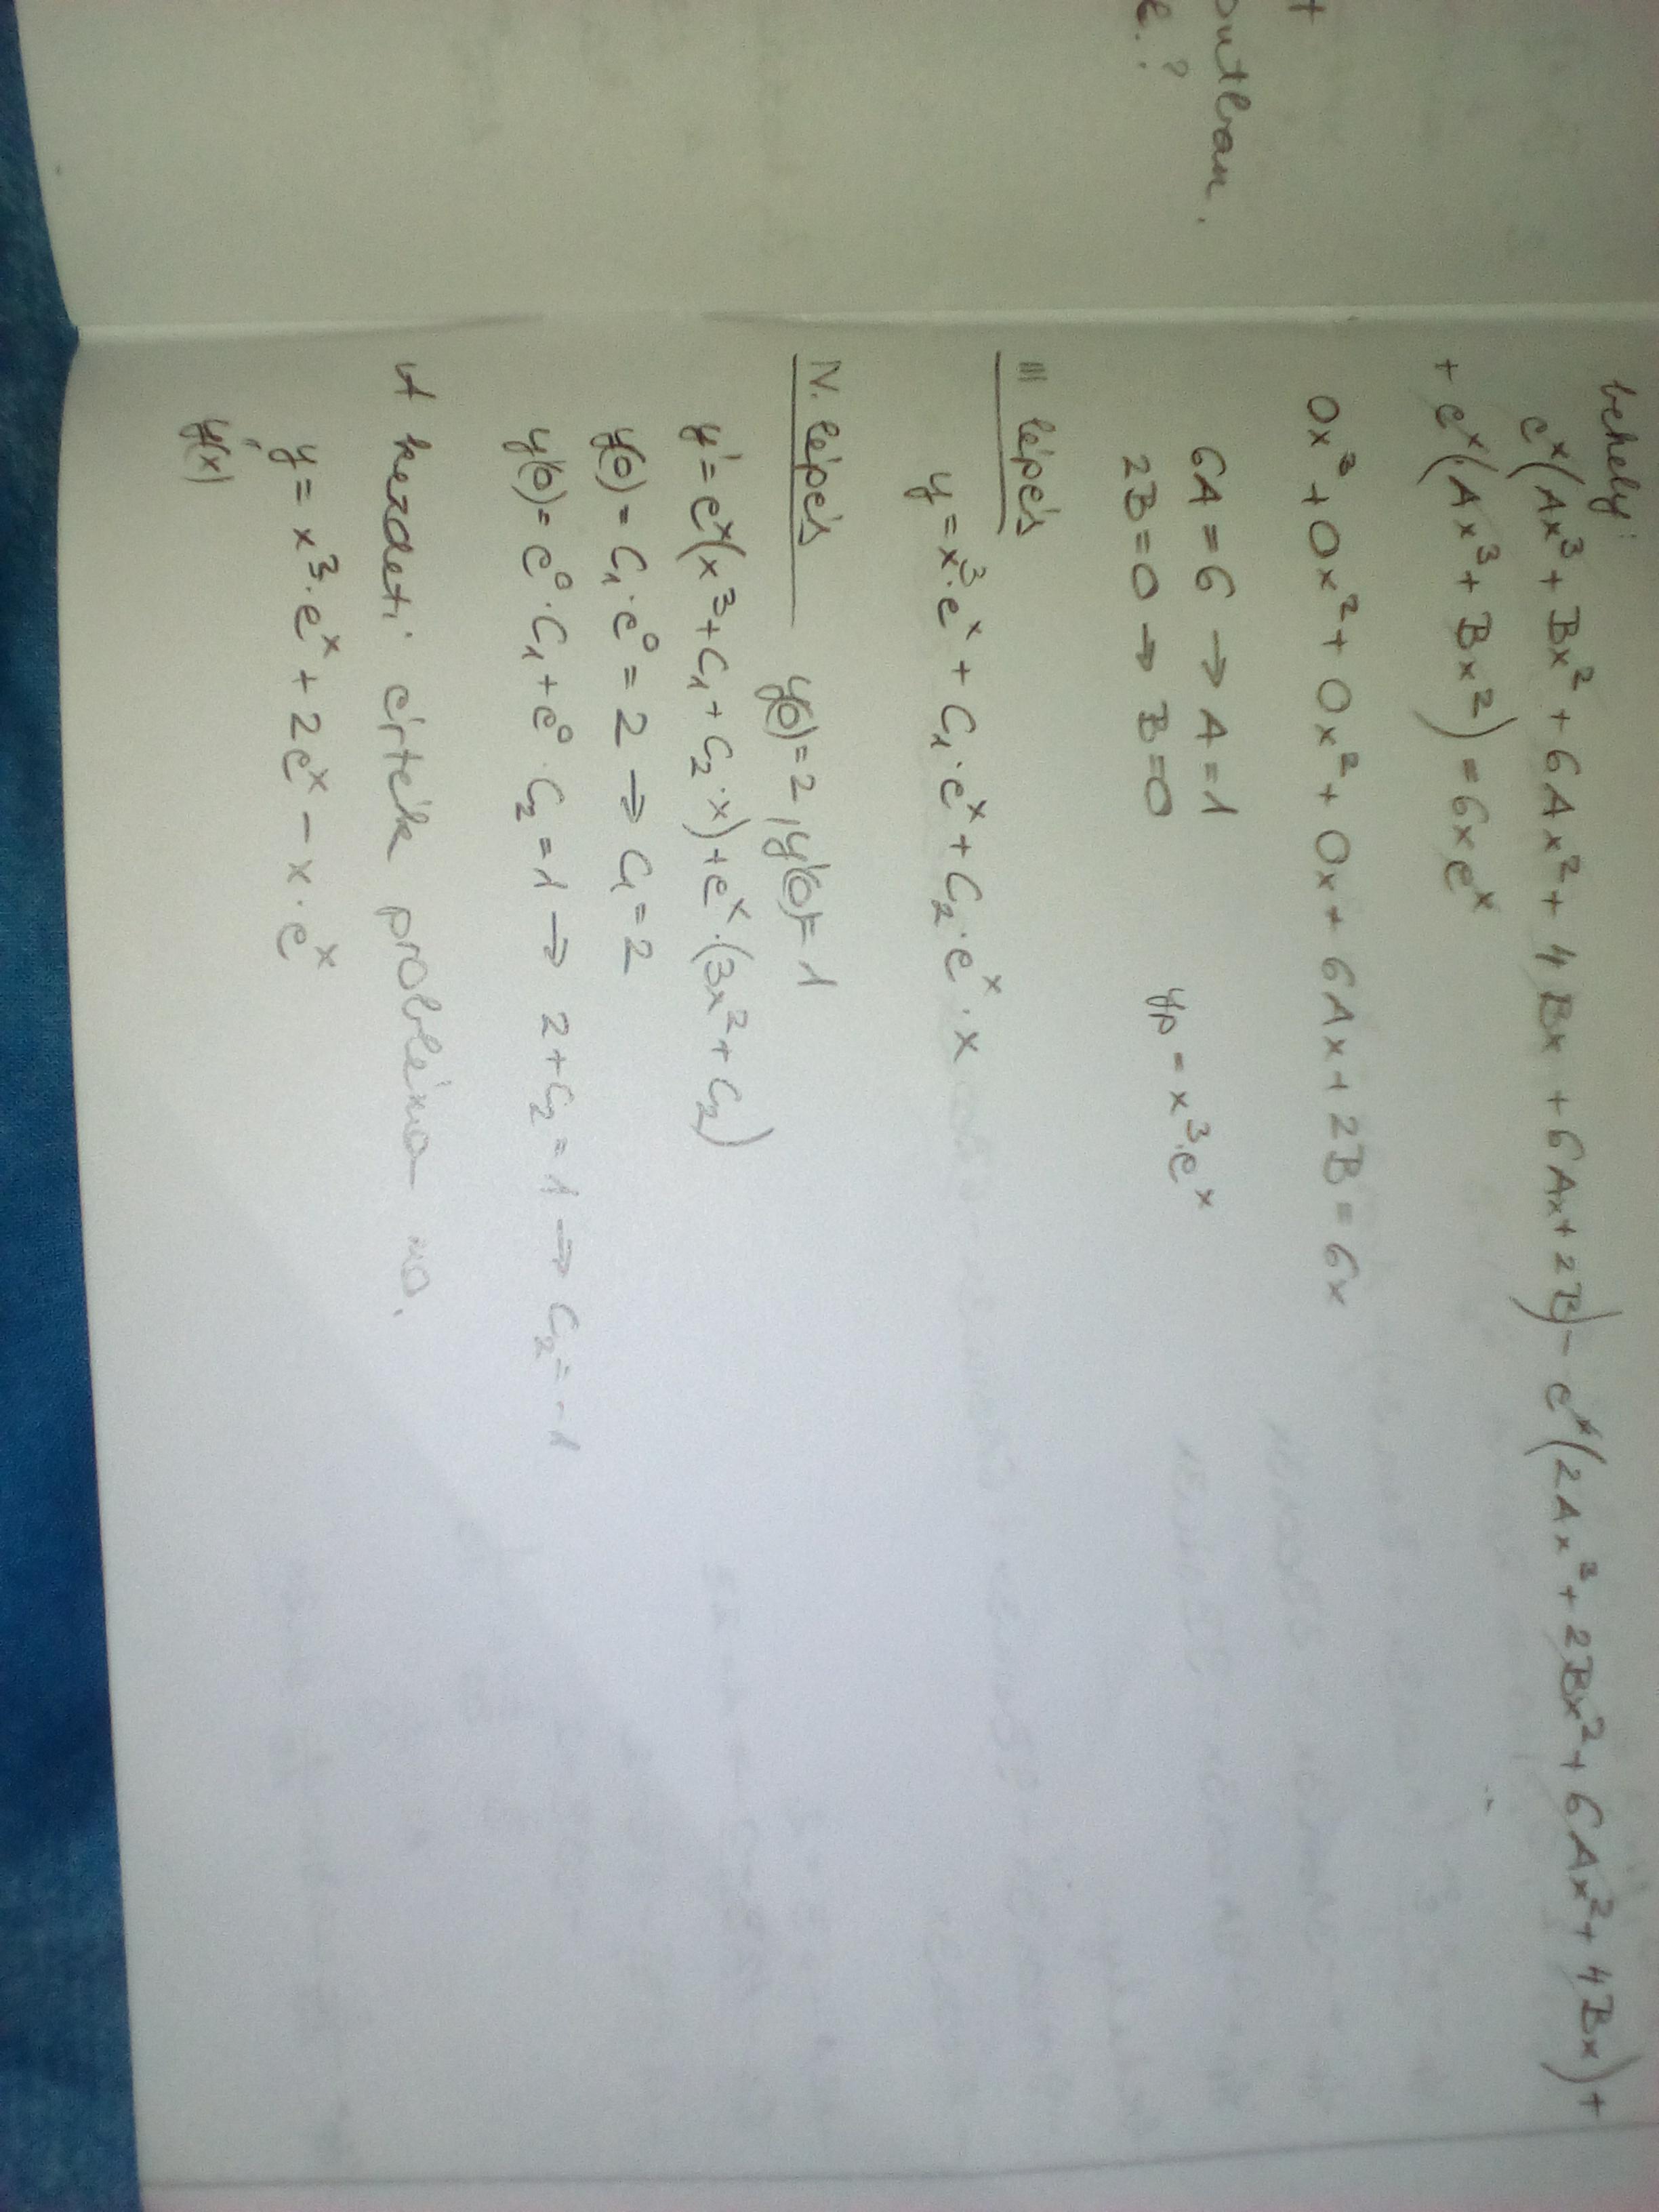 +
behely:
e^x(Ax³ + Bx² + 6Ax² + 4Bx + 6Ax + 2B) - e^x(2Ax³ + 2Bx² + 6Ax² + 4Bx) +
+ e^x(Ax³ + Bx²) = 6xe^x
0x³ + 0x² + 0x² + 0x + 6Ax + 2B = 6x
6A = 6 → A = 1
2B = 0 → B = 0
yp = x³·e^x
III lépés
y = x³·e^x + C₁·e^x + C₂·e^x·x
IV. lépés y(0) = 2, y'(0) = 1
y' = e^x(x³ + C₁ + C₂·x) + e^x·(3x² + C₂)
y(0) = C₁·e⁰ = 2 → C₁ = 2
y'(0) = e⁰·C₁ + e⁰·C₂ = 1 → 2 + C₂ = 1 → C₂ = -1
A kezdeti érték probléma mo.
y = x³·e^x + 2e^x - x·e^x
"
y(x)